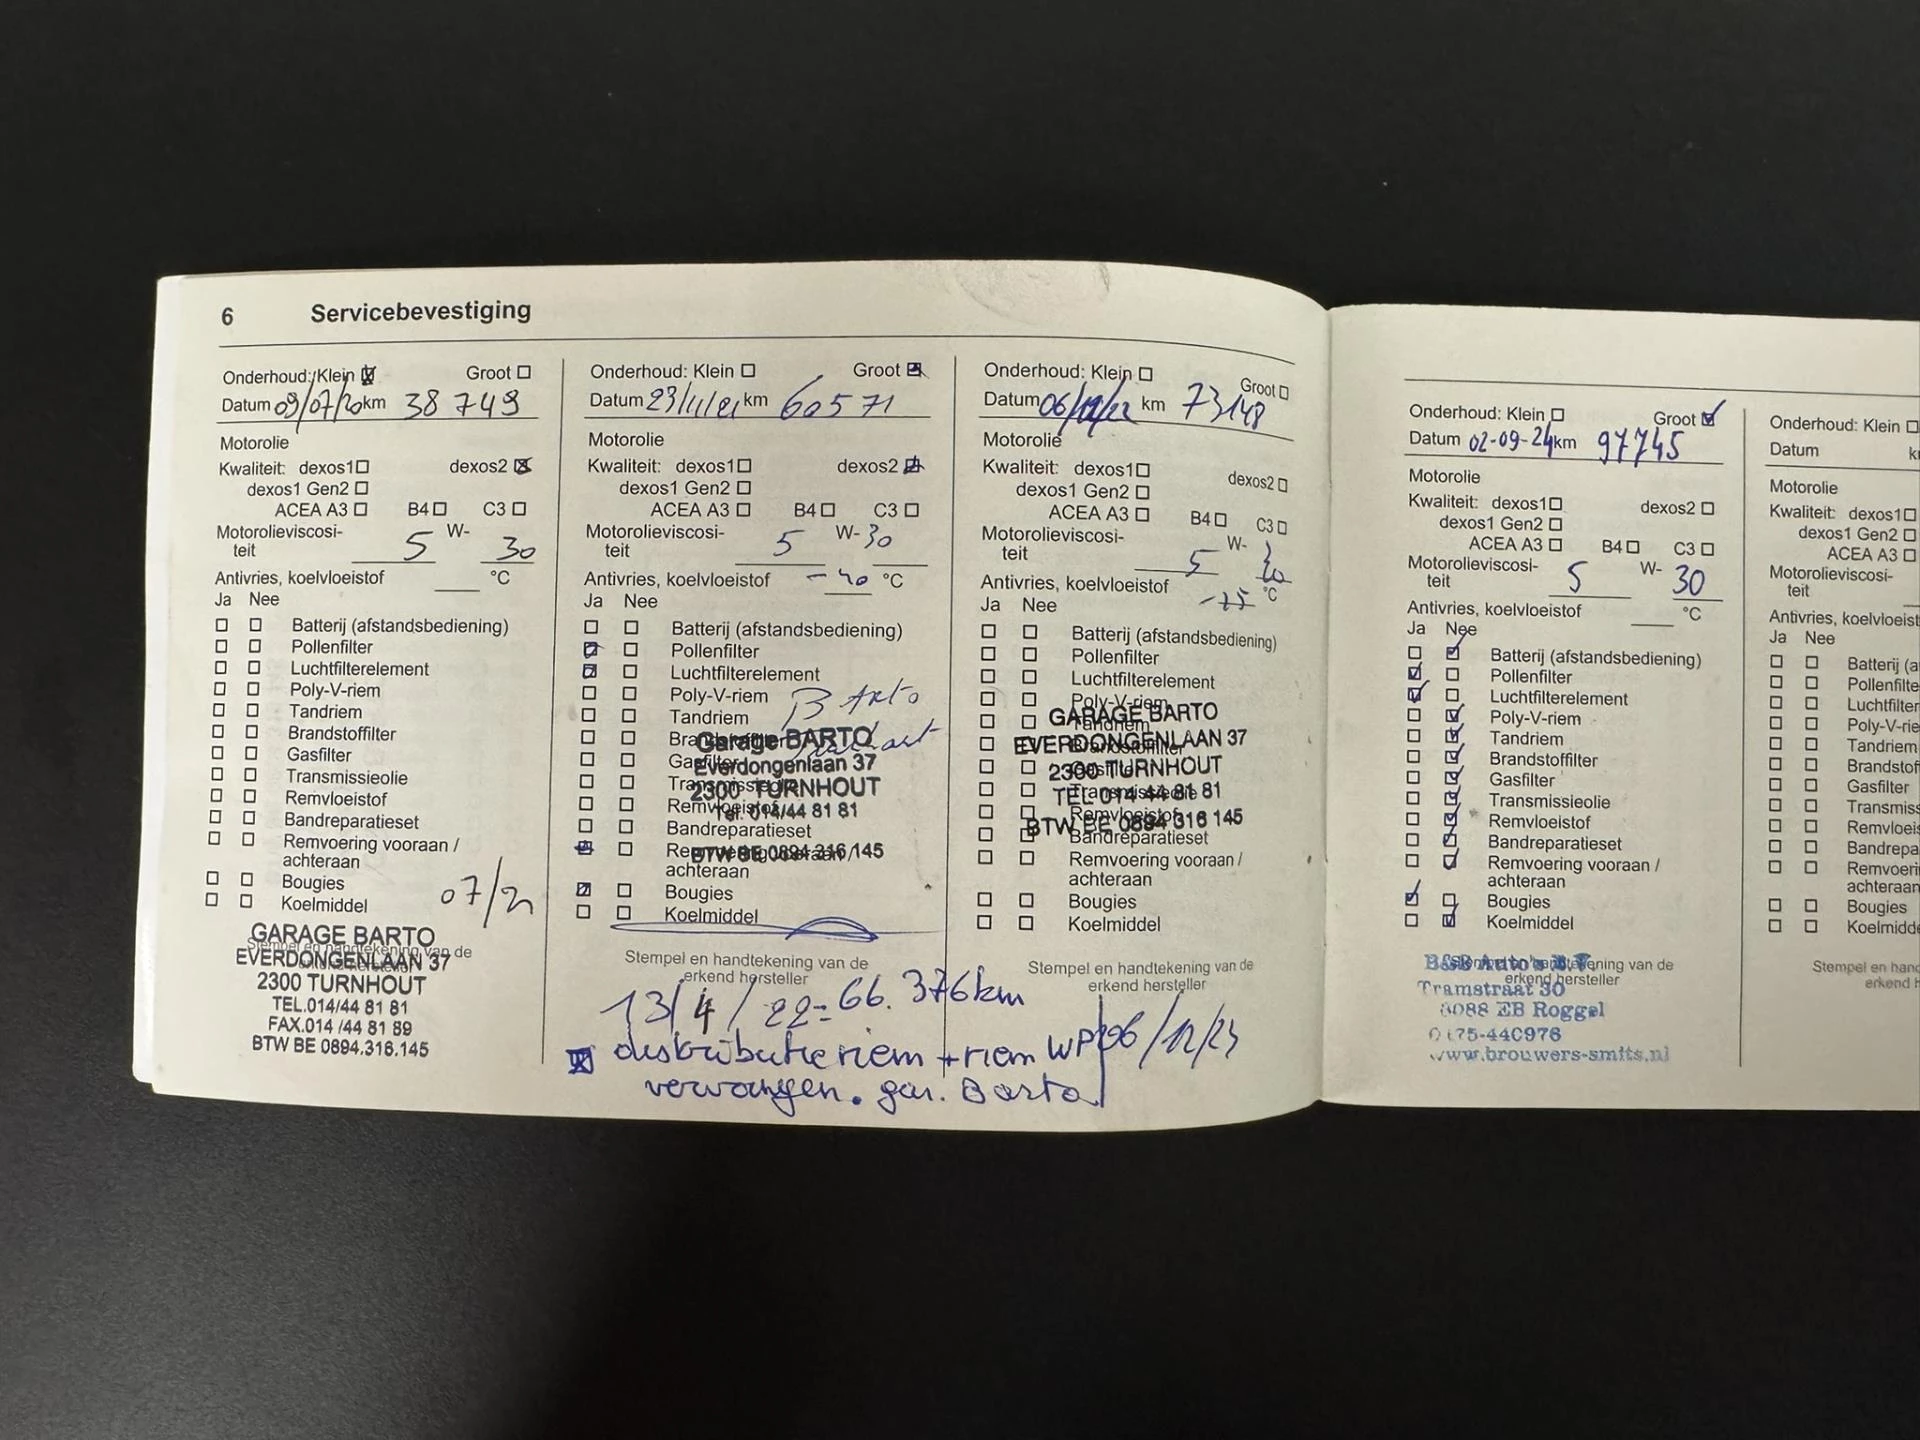 6 Servicebevestiging
Onderhoud: Klein ☒ Groot ☐
Datum 09/07/20 km 38 749
Motorolie
Kwaliteit: dexos1 ☐ dexos2 ☒
dexos1 Gen2 ☐
ACEA A3 ☐ B4 ☐ C3 ☐
Motorolieviscosi- 5 W- 30
teit
Antivries, koelvloeistof ___ °C
Ja Nee
☐ ☐ Batterij (afstandsbediening)
☐ ☐ Pollenfilter
☐ ☐ Luchtfilterelement
☐ ☐ Poly-V-riem
☐ ☐ Tandriem
☐ ☐ Brandstoffilter
☐ ☐ Gasfilter
☐ ☐ Transmissieolie
☐ ☐ Remvloeistof
☐ ☐ Bandreparatieset
☐ ☐ Remvoering vooraan /
achteraan
☐ ☐ Bougies
☐ ☐ Koelmiddel
07/21
Stempel en handtekening van de
GARAGE BARTO
EVERDONGENLAAN 37
2300 TURNHOUT
TEL.014/44 81 81
FAX.014 /44 81 89
BTW BE 0894.316.145
Onderhoud: Klein ☐ Groot ☒
Datum 23/11/21 km 60571
Motorolie
Kwaliteit: dexos1 ☐ dexos2 ☒
dexos1 Gen2 ☐
ACEA A3 ☐ B4 ☐ C3 ☐
Motorolieviscosi- 5 W- 30
teit
Antivries, koelvloeistof °C
Ja Nee
☐ ☐ Batterij (afstandsbediening)
☑ ☐ Pollenfilter
☑ ☐ Luchtfilterelement
☐ ☐ Poly-V-riem
☐ ☐ Tandriem
☐ ☐ Brandstoffilter
☐ ☐ Gasfilter
☐ ☐ Transmissieolie
☐ ☐ Remvloeistof
☐ ☐ Bandreparatieset
☑ ☐ Remvoering vooraan /
achteraan
☑ ☐ Bougies
☐ ☐ Koelmiddel
Barto
Garage BARTO
Everdongenlaan 37
2300 TURNHOUT
Tel. 014/44 81 81
BTW BE 0894.316.145
Stempel en handtekening van de
erkend hersteller
13/4/22= 66.376km
☒ distributieriem + riem WP
vervangen. gar. Barto
Onderhoud: Klein ☐ Groot ☐
Datum 06/12/22 km 73148
Motorolie
Kwaliteit: dexos1 ☐ dexos2 ☐
dexos1 Gen2 ☐
ACEA A3 ☐ B4 ☐ C3 ☐
Motorolieviscosi- 5 W- 30
teit
Antivries, koelvloeistof °C
Ja Nee
☐ ☐ Batterij (afstandsbediening)
☐ ☐ Pollenfilter
☐ ☐ Luchtfilterelement
☐ ☐ Poly-V-riem
☐ ☐ Tandriem
☐ ☐ Brandstoffilter
☐ ☐ Gasfilter
☐ ☐ Transmissieolie
☐ ☐ Remvloeistof
☐ ☐ Bandreparatieset
☐ ☐ Remvoering vooraan /
achteraan
☐ ☐ Bougies
☐ ☐ Koelmiddel
GARAGE BARTO
EVERDONGENLAAN 37
2300 TURNHOUT
TEL 014 44 81 81
BTW BE 0894 316 145
Stempel en handtekening van de
erkend hersteller
06/12/23
Onderhoud: Klein ☐ Groot ☑
Datum 02-09-24 km 97745
Motorolie
Kwaliteit: dexos1 ☐ dexos2 ☐
dexos1 Gen2 ☐
ACEA A3 ☐ B4 ☐ C3 ☐
Motorolieviscosi- 5 W- 30
teit
Antivries, koelvloeistof ___ °C
Ja Nee
☐ ☑ Batterij (afstandsbediening)
☑ ☐ Pollenfilter
☑ ☐ Luchtfilterelement
☐ ☑ Poly-V-riem
☐ ☑ Tandriem
☐ ☑ Brandstoffilter
☐ ☑ Gasfilter
☐ ☑ Transmissieolie
☐ ☑ Remvloeistof
☐ ☑ Bandreparatieset
☐ ☑ Remvoering vooraan /
achteraan
☑ ☐ Bougies
☐ ☑ Koelmiddel
Stempel en handtekening van de
erkend hersteller
B&B Auto's B.V.
Tramstraat 30
6088 EB Roggel
0475-440976
www.brouwers-smits.nl
Onderhoud: Klein ☐
Datum
Motorolie
Kwaliteit: dexos1 ☐
dexos1 Gen2 ☐
ACEA A3 ☐
Motorolieviscosi-
teit
Antivries, koelvloeist
Ja Nee
☐ ☐ Batterij (a
☐ ☐ Pollenfilte
☐ ☐ Luchtfilter
☐ ☐ Poly-V-rie
☐ ☐ Tandriem
☐ ☐ Brandstof
☐ ☐ Gasfilter
☐ ☐ Transmiss
☐ ☐ Remvloeis
☐ ☐ Bandrepa
☐ ☐ Remvoeri
achteraan
☐ ☐ Bougies
☐ ☐ Koelmidde
Stempel en hand
erkend h